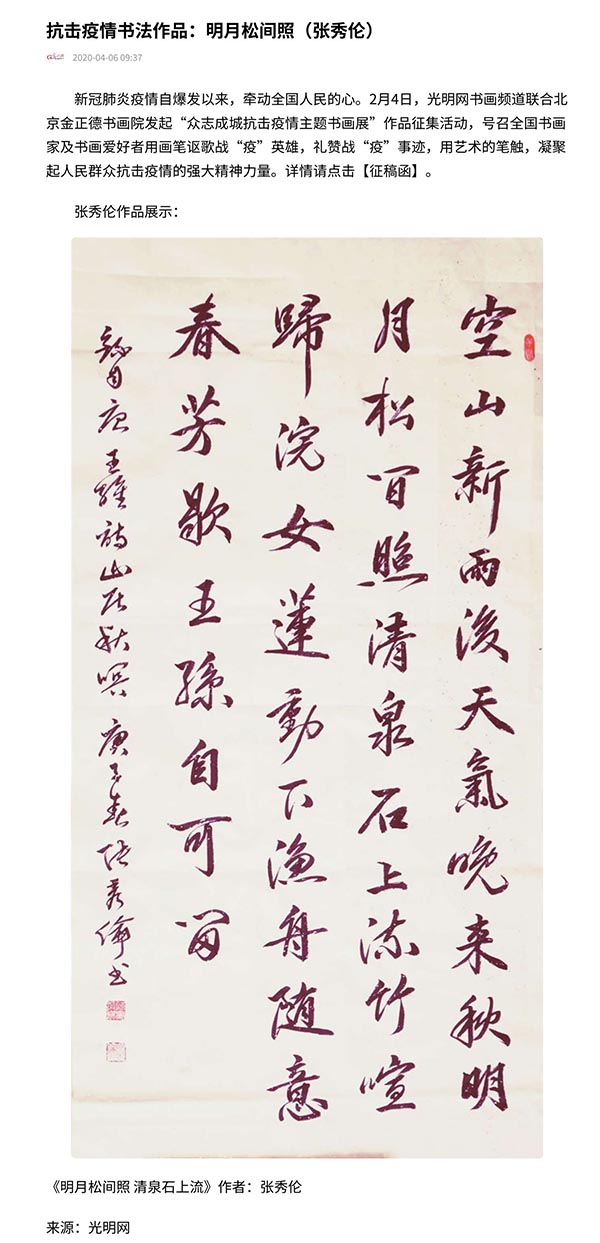 抗击疫情书法作品：明月松间照（张秀伦）
2020-04-06 09:37
新冠肺炎疫情自爆发以来，牵动全国人民的心。2月4日，光明网书画频道联合北
京金正德书画院发起“众志成城抗击疫情主题书画展”作品征集活动，号召全国书画
家及书画爱好者用画笔讴歌战“疫”英雄，礼赞战“疫”事迹，用艺术的笔触，凝聚
起人民群众抗击疫情的强大精神力量。详情请点击【征稿函】。
张秀伦作品展示：
空山新雨後天氣晚来秋明
月松间照清泉石上流竹喧
歸浣女蓮動下漁舟随意
春芳歇王孫自可留
録自唐王維詩山居秋暝 庚子春张秀倫书
《明月松间照 清泉石上流》作者：张秀伦
来源：光明网